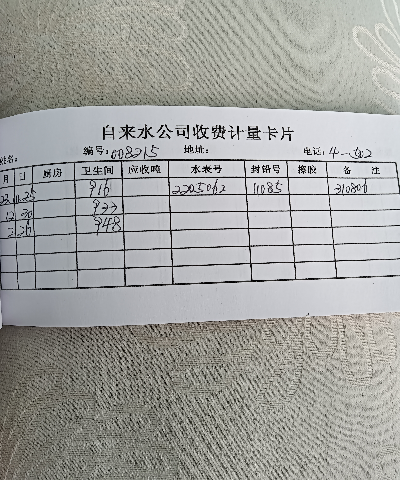 自来水公司收费计量卡片
姓名: 编号:008215 地址: 电话:4-502
月 日 厨房 卫生间 应收吨 水表号 封铅号 换胶 备 注
23.11.25 916 2205062 11085 310806
12 30 933
2.26 948